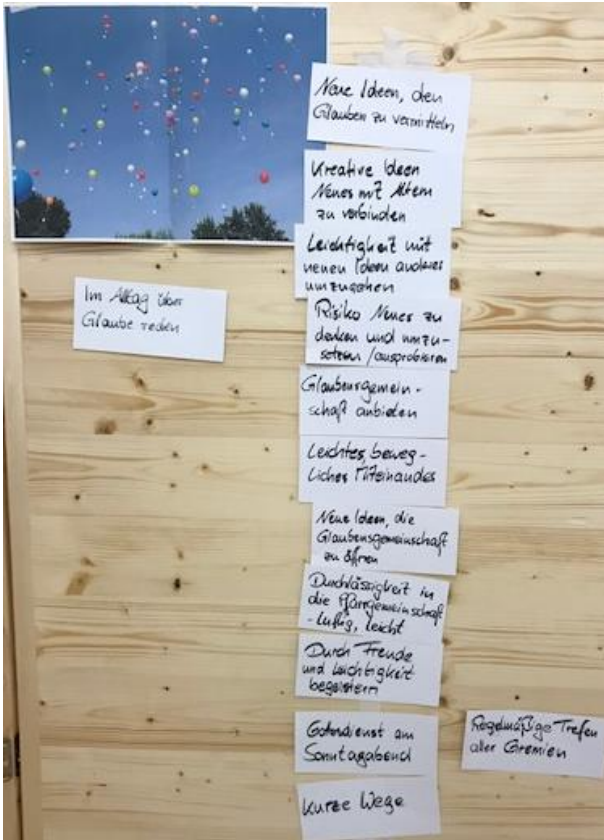 Neue Ideen, den
Glauben zu vermitteln
Kreative Ideen
Neues mit Altem
zu verbinden
Leichtigkeit mit
neuen Ideen anderes
umzugehen
Im Alltag über
Glaube reden
Risiko Neues zu
denken und umzu-
setzen / ausprobieren
Glaubensgemein-
schaft anbieten
Leichtes, beweg-
liches Miteinander
Neue Ideen, die
Glaubensgemeinschaft
zu öffnen
Durchlässigkeit in
die Pfarrgemeinschaft
- luftig, leicht
Durch Freude
und Leichtigkeit
begeistern
Gottesdienst am
Sonntagabend
Regelmäßige Treffen
aller Gremien
Kurze Wege